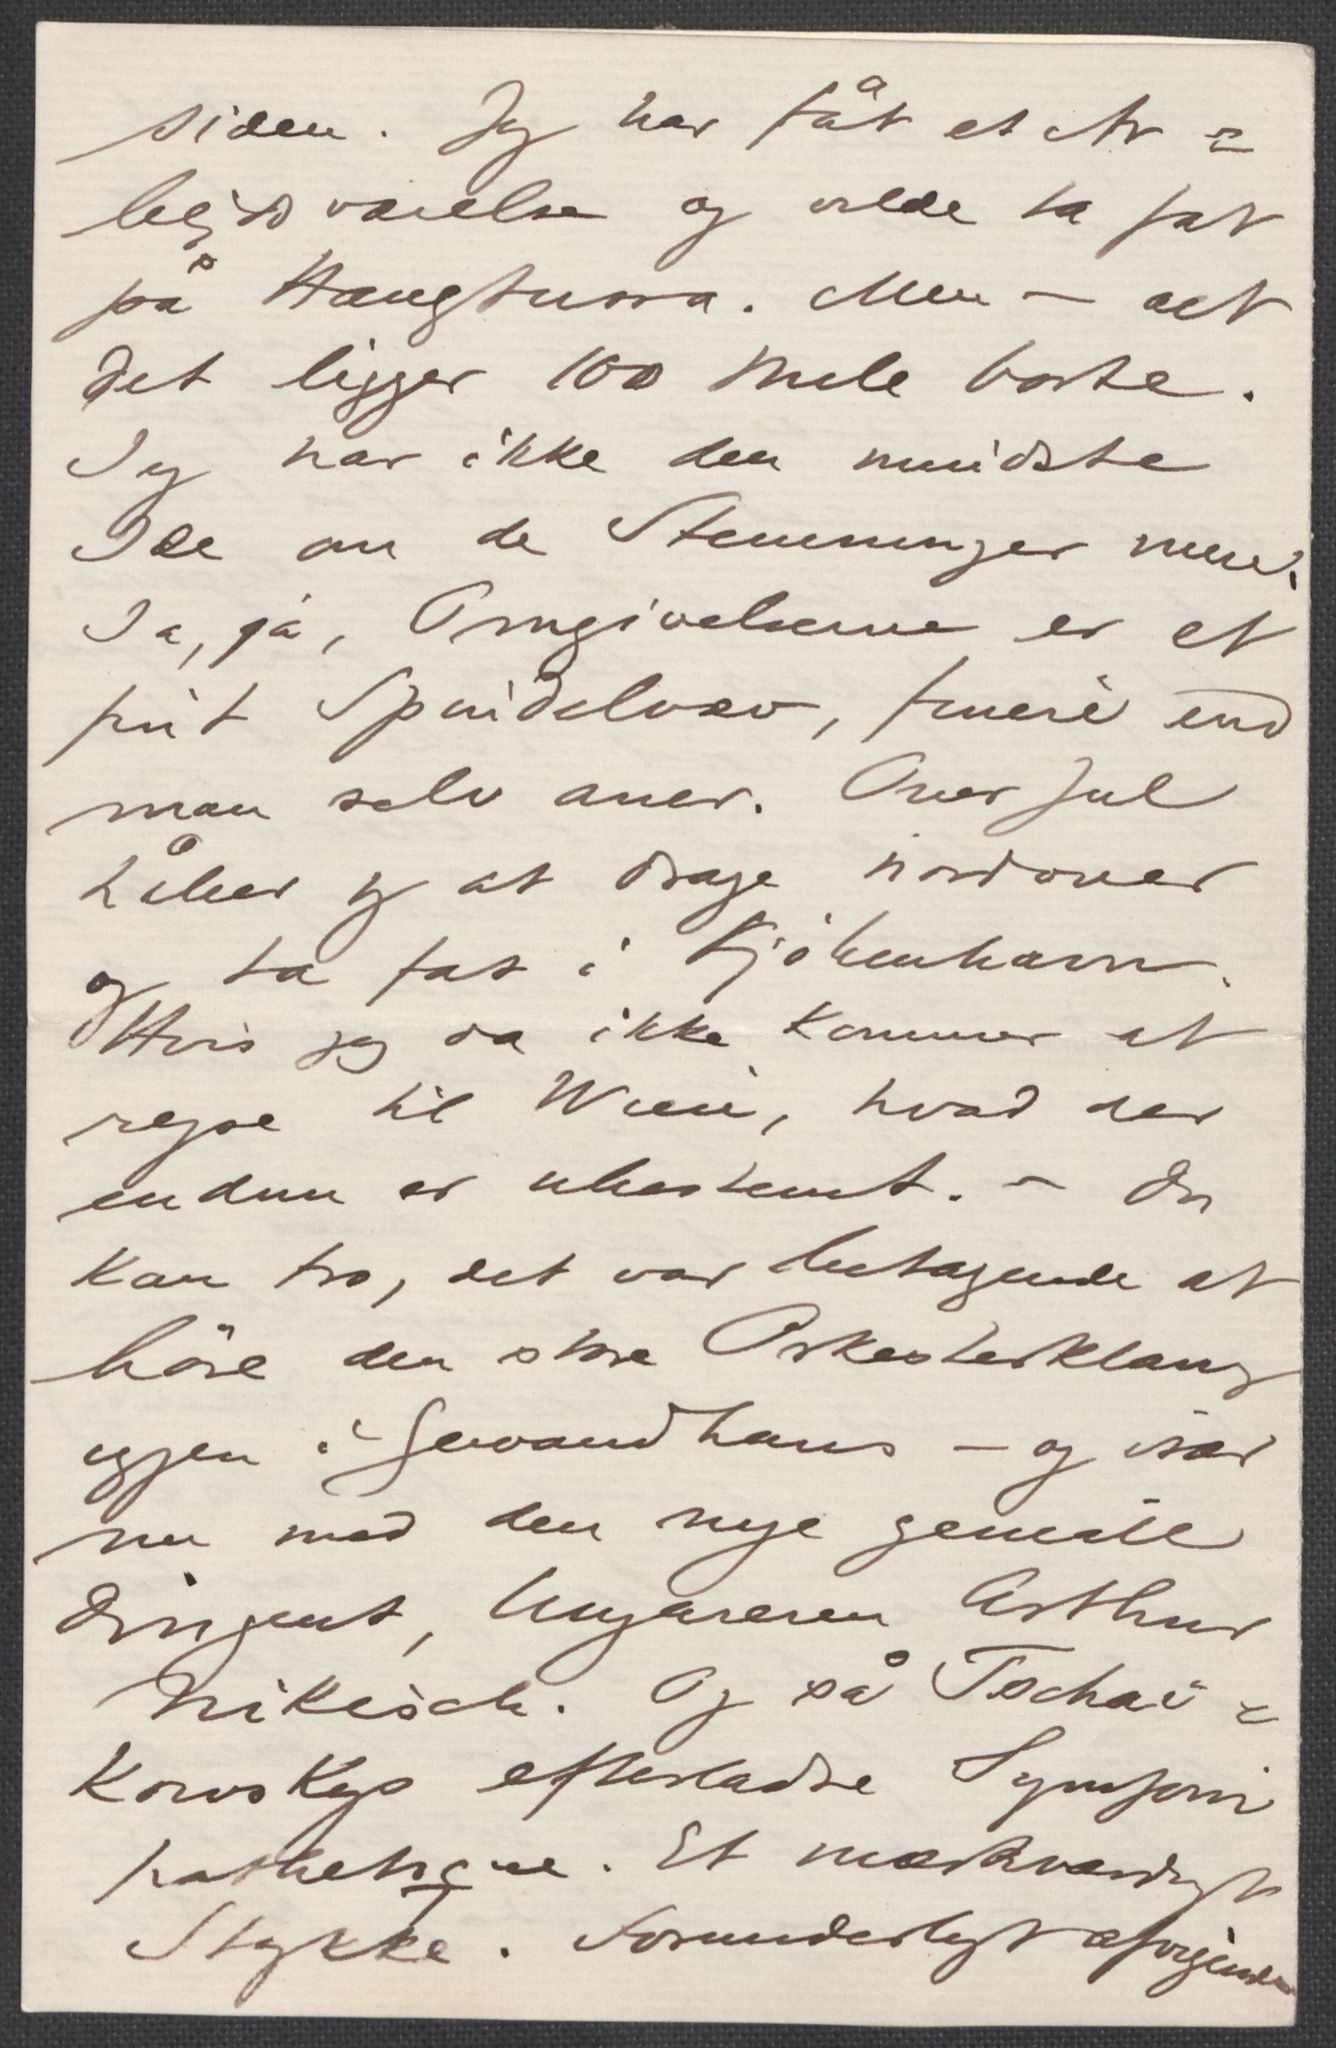 siden. Jeg har fåt et Ar=
bejdsværelse og vilde ta fat
på Haugtussa. Men – alt
det ligger 100 Mile borte.
Jeg har ikke den mindste
Ide om de Stemninger mere.
Ja, ja, Omgivelserne er et
fint Spindelvæv, finere end
man selv aner. Over Jul
håber jeg at drage nordover
og ta fat i Kjøbenhavn.
Hvis jeg da ikke kommer at
rejse til Wien, hvad der
endnu er ubestemt. – Du
kan tro, det var betagende at
høre den store Orkesterklang
igjen i Gewandhaus – og især
nu med den nye geniale
Dirigent, Ungareren Arthur
Nikisch. Og så Tschai=
kowskys efterladte Symfoni
pathetique. Et mærkværdigt
Stykke. Forunderligt